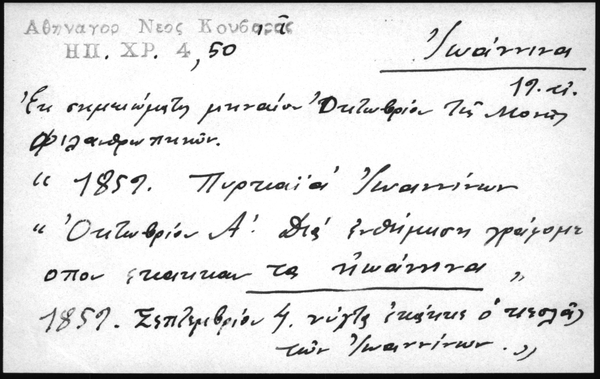 Αθηναγορ Νεος Κουβαρας ιᾶ
ΗΠ. ΧΡ. 4, 50
Ἰωάννινα
19. αἰ.
Ἐκ σημειώματος μηναίου Ὀκτωβρίου τῆς Μονῆς
Φιλανθρωπηνῶν.
" 1859. Πυρκαϊά Ἰωαννίνων
" Ὀκτωβρίου Α'. Διά ἐνθύμηση γράφομε
οπου εκαηκαν τα ἡωάνηνα "
1859. Σεπτεμβρίου 4. νύχτα ἐκάηκε ὁ
τῶν Ἰωαννίνων. "